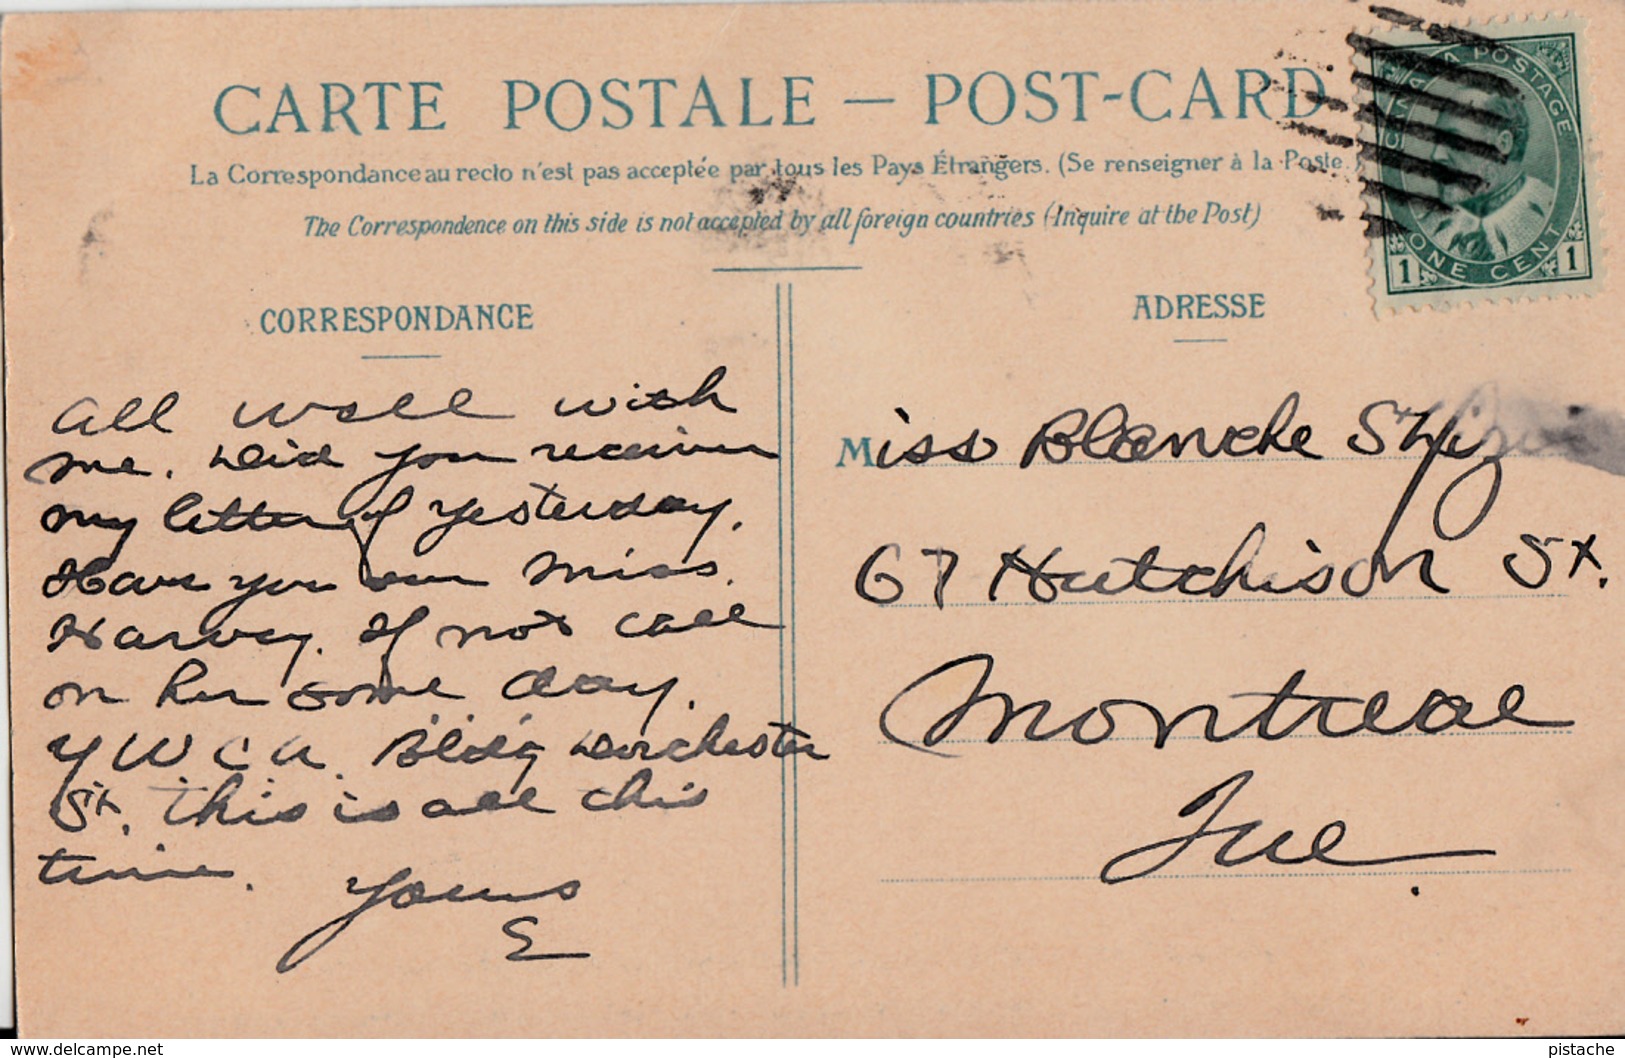 CARTE POSTALE — POST-CARD
La Correspondance au recto n'est pas acceptée par tous les Pays Étrangers. (Se renseigner à la Poste.)
The Correspondence on this side is not accepted by all foreign countries (Inquire at the Post)
CANADA POSTAGE
ONE CENT
1 1
CORRESPONDANCE
all well with
me. Did you receive
my letter of yesterday.
Have you seen Miss.
Harvey. If not call
on her some day.
YWCA. Bldg Dorchester
St. this is all this
time.
Yours
E
ADRESSE
Miss Blanche
67 Hutchison St.
Montreal
Que.
delcampe.net
pistache